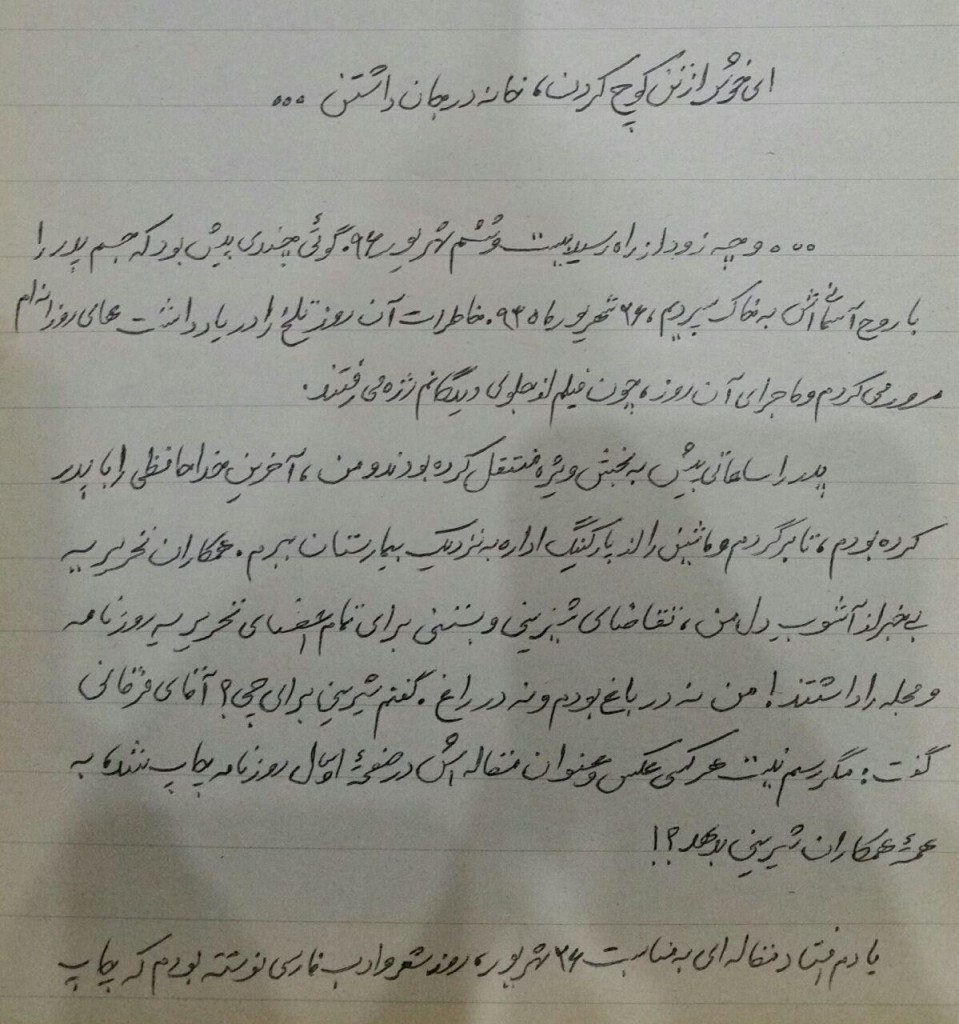 ای خوش از تن کوچ کردن، خانه در جان داشتن ...
... و چه زود از راه رسید بیست و ششم شهریور ۹۶. گوئی چندی پیش بود که جسم پدر را
با روح آسمانی‌اش به خاک سپردیم، ۲۶ شهریور ماه ۹۳. خاطرات آن روز تلخ را در یادداشت های روزانه‌ام
مرور می کردم و ماجرای آن روز، چون فیلم از جلوی دیدگانم رژه می رفتند.
پدر را ساعاتی پیش به بخش ویژه منتقل کرده بودند و من، آخرین خداحافظی را با پدر
کرده بودم، تا برگردم و ماشین را از پارکینگ اداره به نزدیک بیمارستان ببرم. همکاران تحریریه
بی‌خبر از آشوب دل من، تقاضای شیرینی و بستنی برای تمام اعضای تحریریه روزنامه
و مجله را داشتند! من نه در باغ بودم و نه در راغ. گفتم شیرینی برای چی؟ آقای فرقانی
گفت: مگر رسم نیست هر کسی عکس و عنوان مقاله اش در صفحهٔ اول روزنامه چاپ شد، به
همهٔ همکاران شیرینی بدهد؟!
یادم افتاد مقاله ای به مناسبت ۲۶ شهریور، روز شعر و ادب فارسی نوشته بودم که چاپ